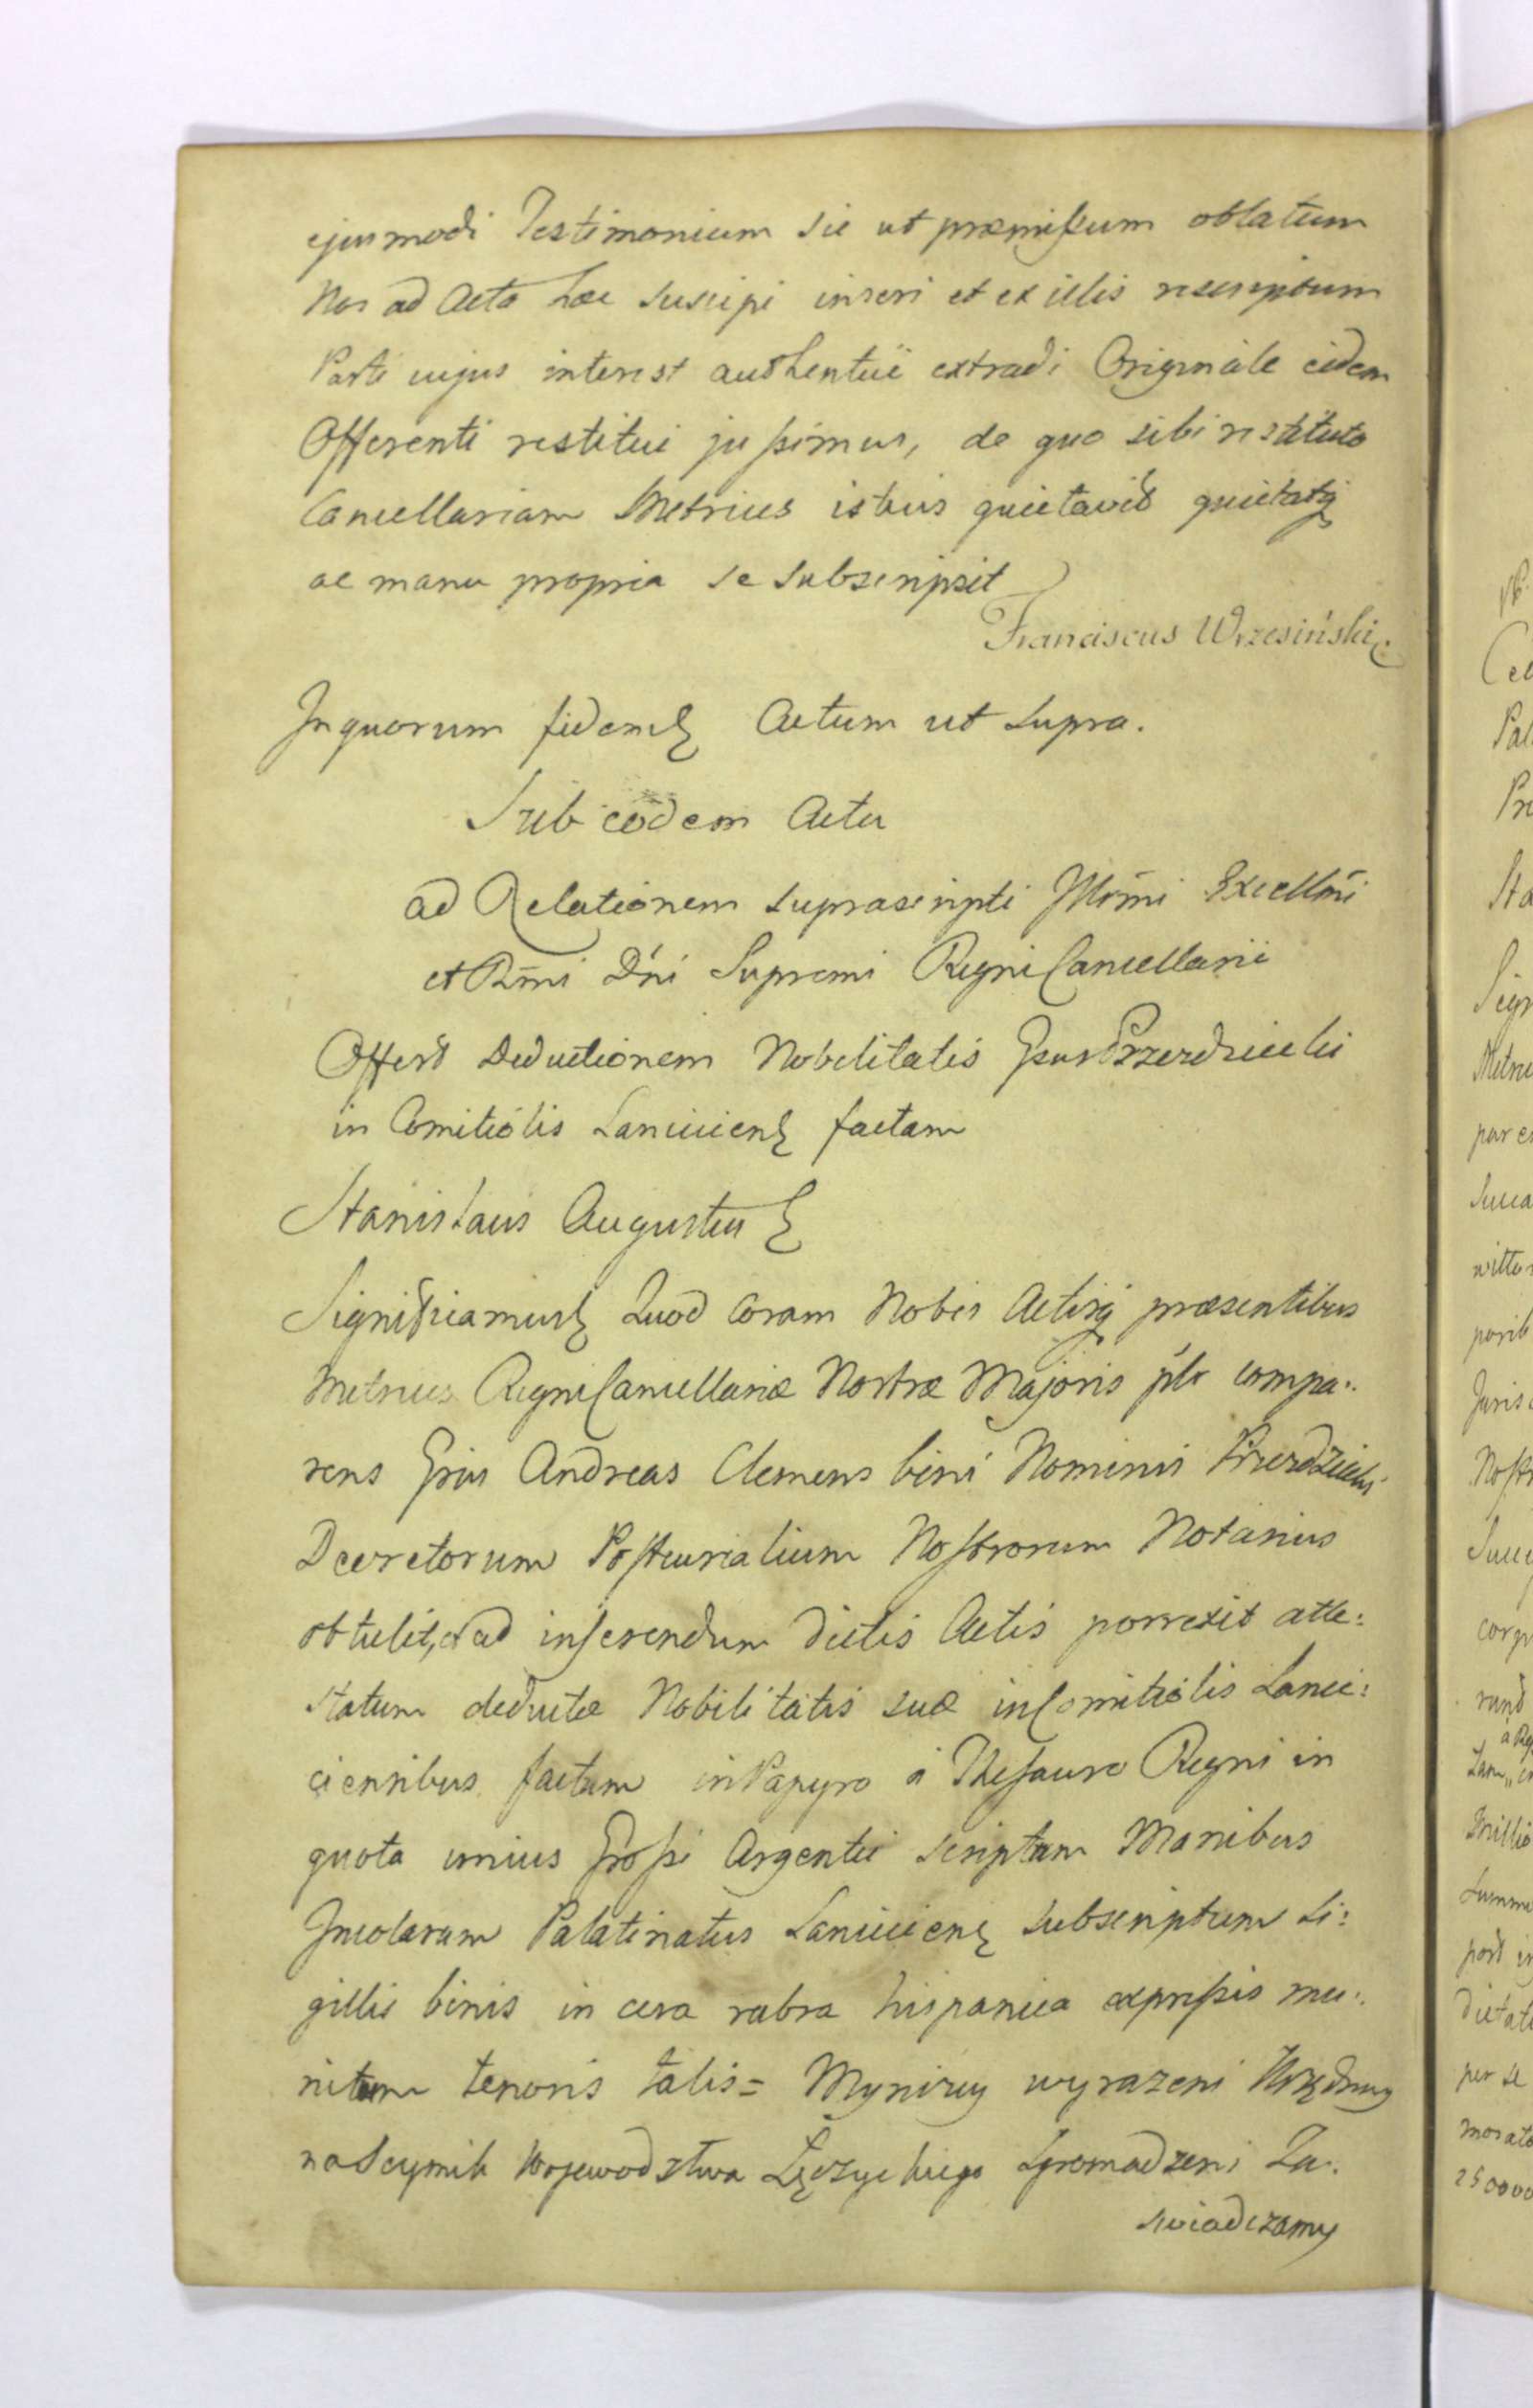 ejusmodi Testimonium sic ut præmissum oblatum
Nos ad Acta hæc suscipi inseri et ex illis rescriptum
Parti cujus interest authentice extradi Originale eidem
Offerenti restitui jussimus, de quo sibi restituto
Cancellariam Metrices istius quietavit quietatq
ac manu propria se subscripsit
Franciscus Wrzesiński
In quorum fidem Actum ut supra.
Sub eodem Actu
ad Relationem suprascripti Illmi Excellmi
et Rmi Dni Supremi Regni Cancellarii
Offert Deductionem Nobilitatis Gsus
in Comitiolis Lanciciens factam
Stanislaus Augustus
Significamus Quod coram Nobis Actisq præsentibus
Metrices Regni Cancellariæ Nostræ Majoris plr compa:
rens Grus Andreas Clemens bini Nominis
Decretorum Postcurialium Nostrorum Notarius
obtulit, et ad inserendum dictis Actis porrexit atte:
statum deductæ Nobilitatis suæ in Comitiolis Lanci:
ciensibus factum in Papyro à Thesauro Regni in
quota unius Grossi Argentei scriptum Manibus
Incolarum Palatinatus Lanciciens subscriptum Si:
gillis binis in cera rubra hispanica expressis mu:
nitum tenoris talis = My niżey wyrażeni Urzędnicy
na Seymik Wojewodztwa Łęczyckiego zgromadzeni Za:
swiadczamy